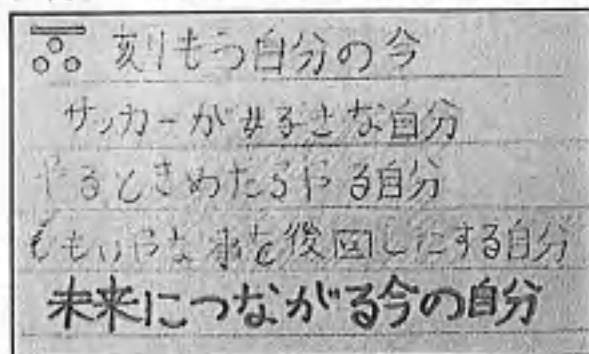 刻もう自分の今
サッカーが好きな自分
やるときめたらやる自分
でもいやな事を後回しにする自分
未来につながる今の自分